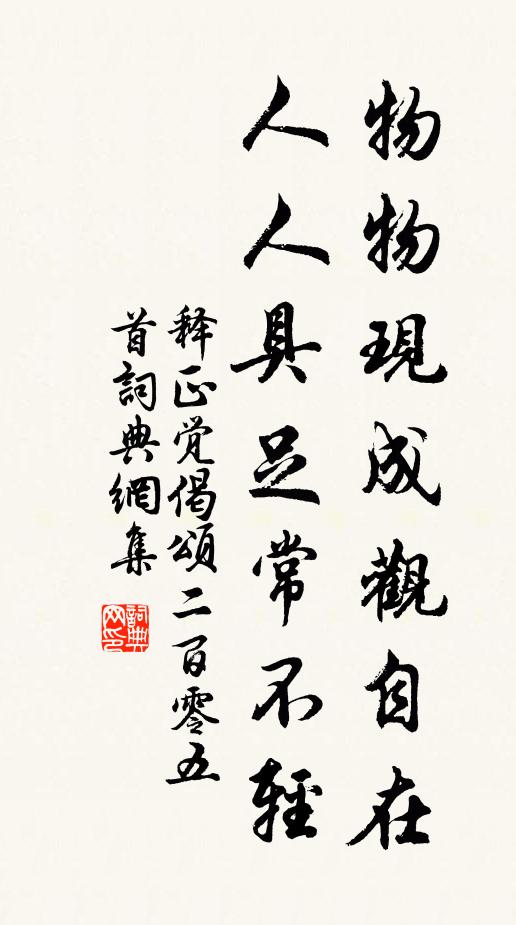 物物現成觀自在
人人具足常不輕
释正觉偈頌二百零五
首詞典網集
詞典网印